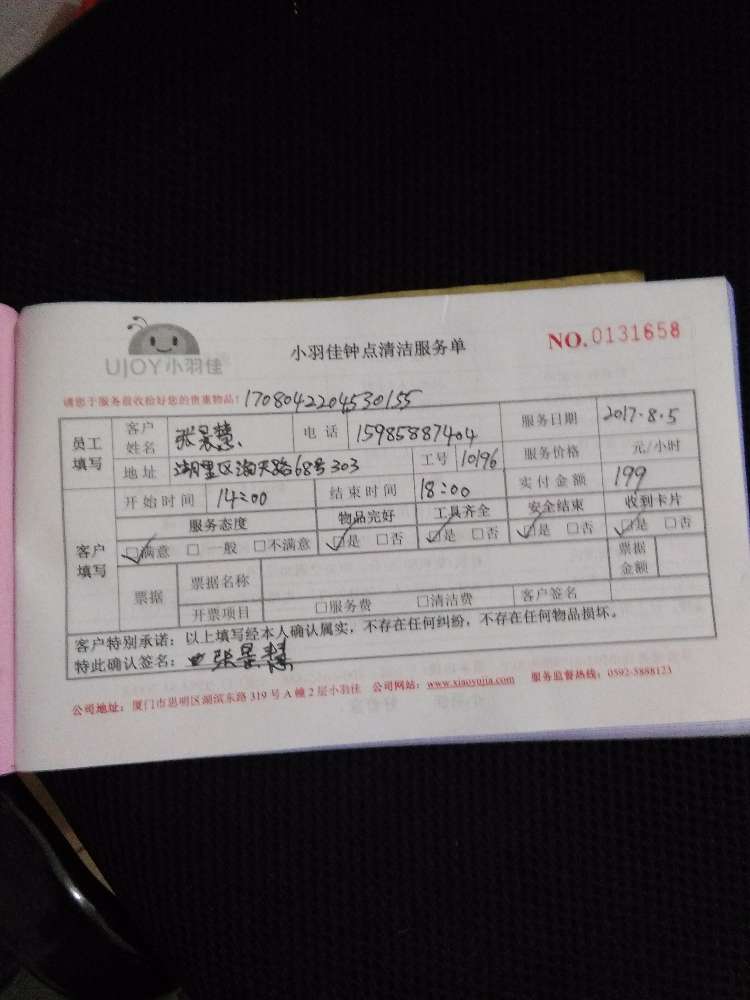 UJOY小羽佳
小羽佳钟点清洁服务单
NO.0131658
请您于服务前收拾好您的贵重物品! 1708042204530155
员工填写 客户姓名 张景慧 电话 15985887404 服务日期 2017.8.5
地址 湖里区海天路68号303 工号 10196 服务价格 元/小时
客户填写 开始时间 14:00 结束时间 18:00 实付金额 199
服务态度 物品完好 工具齐全 安全结束 收到卡片
☑满意 □一般 □不满意 ☑是 □否 ☑是 □否 ☑是 □否 ☑是 □否
票据 票据名称 票据金额
开票项目 □服务费 □清洁费 客户签名
客户特别承诺：以上填写经本人确认属实，不存在任何纠纷，不存在任何物品损坏。
特此确认签名： 张景慧
公司地址：厦门市思明区湖滨东路319号A幢2层小羽佳 公司网站：www.xiaoyujia.com 服务监督热线：0592-5888123